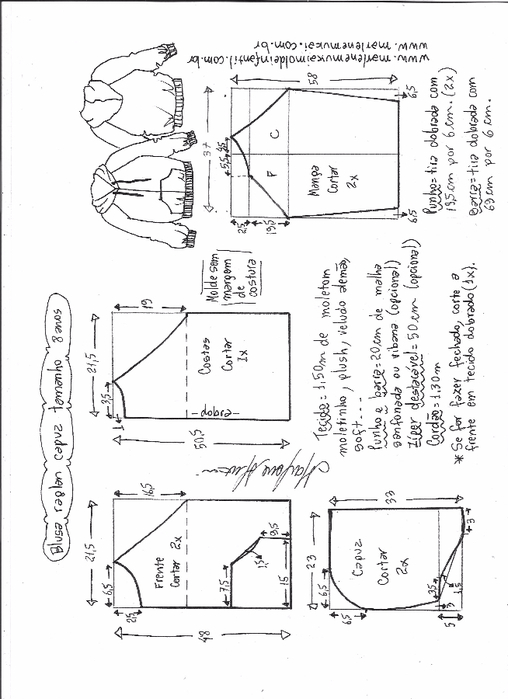 Blusa raglan capuz tamanho 8 anos
21,5
6,5
2,5
16,5
48
Frente
Cortar 2x
7,5
1,5
3,5
15
21,5
3,5
1
19
50,5
Costas
Cortar
1x
dobra
Molde sem
margem
de
costura
37
5,5
4,5
58
2,5
19,5
F
C
Manga
Cortar
2x
6,5
6,5
www.marlenemukaimoldeinfantil.com.br
www.marlenemukai.com.br
23
6,5
6,5
33
Capuz
Cortar
2x
3,5
3
1,5
5
3
Tecido = 1,50m de moletom
moletinho, plush, veludo alemão,
soft....
Punho e barra = 20cm de malha
sanfonada ou ribana (opcional)
Zíper destacável = 50cm (opcional)
Cordão = 1,30m
* Se for fazer fechado, corte a
frente em tecido dobrado (1x).
Punho = tira dobrada com
19,5cm por 6cm. (2x)
Barra = tira dobrada com
69cm por 6cm.